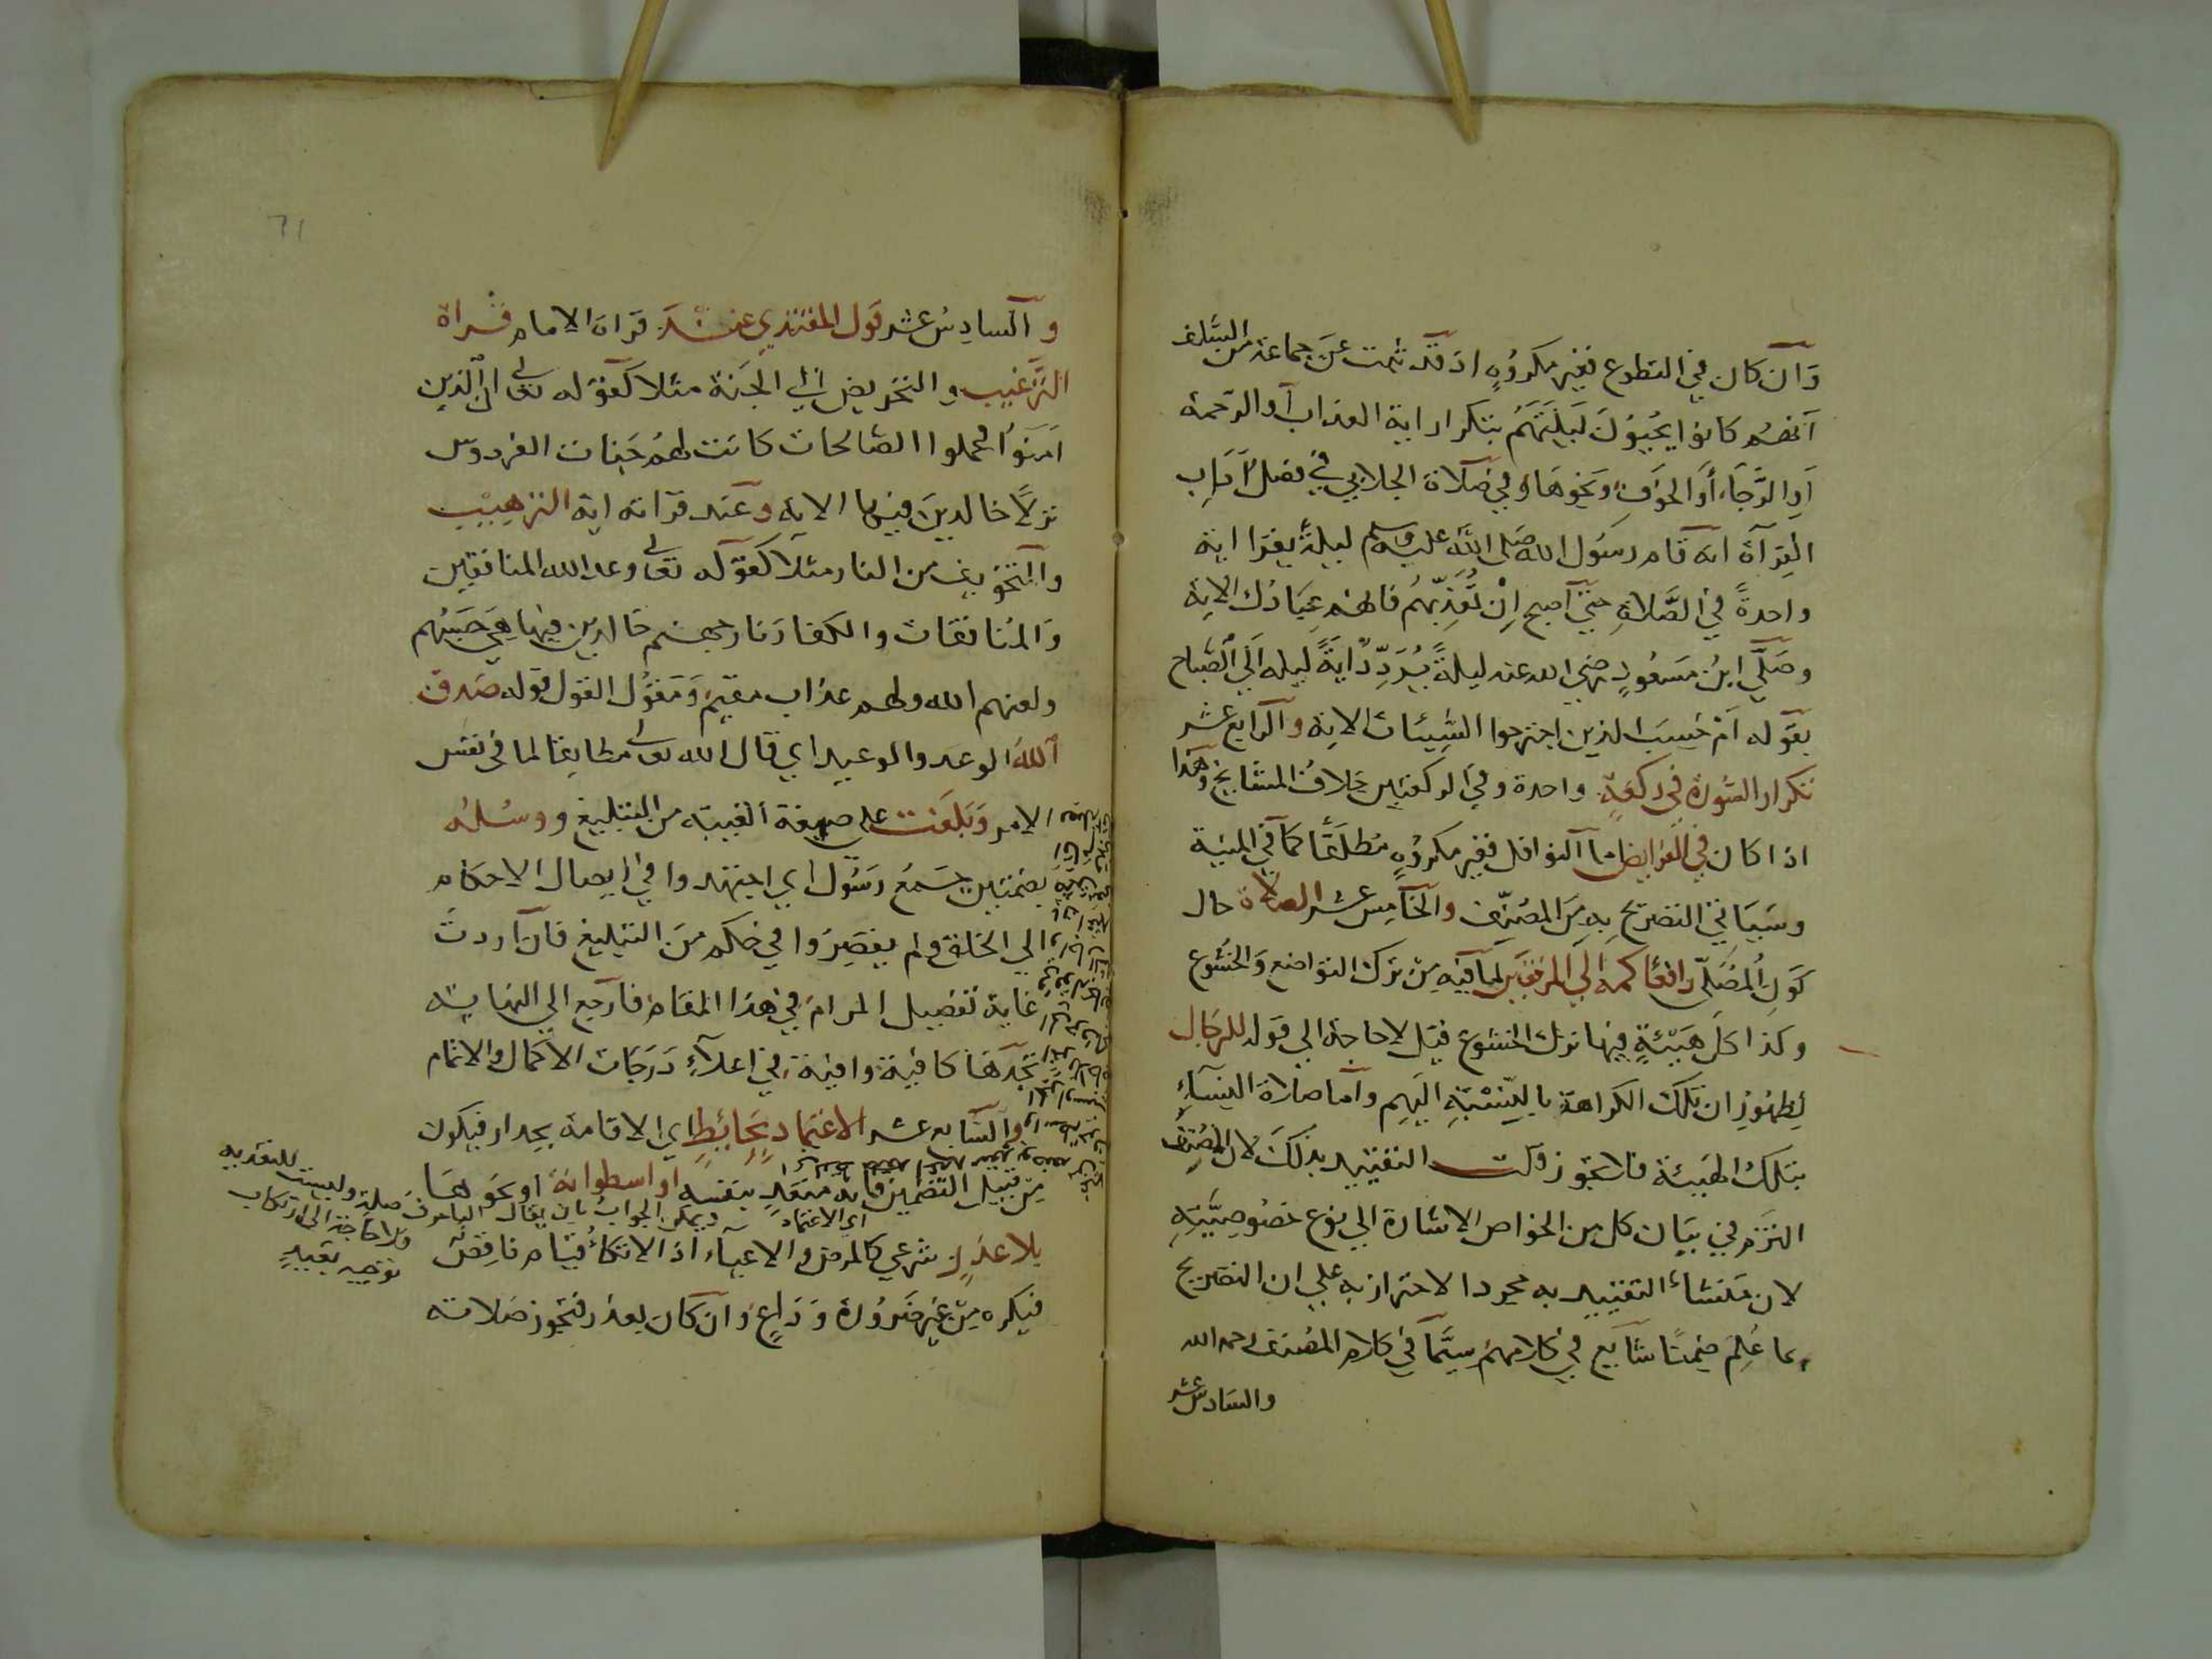 وان كان في التطوع فغير مكروه اذ قد ثبت عن جماعة من السلف
انهم كانوا يحيون ليلتهم بتكرار اية العذاب او الرحمة
او الرجاء او الخوف ونحوها وفي صلاة الجلابي في فصل آداب
القرآة انه قام رسول الله صلى الله عليه وسلم ليلة يقرا اية
واحدة في الصلاة حتى اصبح ان تعذبهم فانهم عبادك الاية
وصلى ابن مسعود رضي الله عنه ليلة يردد اية ليله الى الصباح
بقوله ام حسب الذين اجترحوا السيئات الاية والرابع عشر
تكرار السورة في ركعة واحدة وفي الركعتين خلاف المشايخ وهذا
اذا كان في الفرايض اما النوافل فغير مكروه مطلقا كما في المنية
وسياتي التصريح به من المصنف والخامس عشر الصلاة حال
كون المصلي رافعا كمه الى المرفقين لما فيه من ترك التواضع والخشوع
وكذا كل هيئة فيها ترك الخشوع قيل لا حاجة الى قوله للرجال
لظهور ان تلك الكراهة بالنسبة اليهم واما صلاة النساء
بتلك الهيئة فلا تجوز قلت التقييد بذلك لان المصنف
التزم في بيان كل من الخواص الاشارة الى نوع خصوصيته
لان منشاء التقييد به مجرد الاحتراز به على ان التصريح
بما علم ضمنا شايع في كلامهم سيما في كلام المصنف رحمه الله
والسادس عشر
71
والسادس عشر قول المقتدي عند قراة الامام قراة
الترغيب والتحريض الى الجنة مثلا كقوله تعالى ان الذين
امنوا وعملوا الصالحات كانت لهم جنات الفردوس
نزلا خالدين فيها الاية وعند قرانه اية الترهيب
والتخويف من النار مثلا كقوله تعالى وعد الله المنافقين
والمنافقات والكفار نار جهنم خالدين فيها هي حسبهم
ولعنهم الله ولهم عذاب مقيم ومقول القول قوله صدق
الله الوعد والوعيد اي قال الله تعالى مطابقا لما في نفس
الامر وبلغت على صيغة الغيبة من التبليغ ورسله
بضمتين جمع رسول اي اجتهدوا في ايصال الاحكام
الى الخلق ولم يقصروا في حكم من التبليغ فان اردت
غاية تفصيل المرام في هذا المقام فارجع الى النهاية
تجدها كافية وافية في اعلاء درجات الاكمال والاتمام
والسابع عشر الاعتماد بحائط اي الاقامة بجدار فيكون
من قبيل التضمين فانه متعد بنفسه او اسطوانة او نحوهما
اي الاعتماد
ويمكن الجواب بان يقال الباء حرف صلة وليست للتعدية
فلا حاجة الى ارتكاب
توجيه بعيد
بلا عذر شرعي كالمرض والاعياء اذ الاتكاء قيام ناقص
فيكره من غير ضرورة وداع وان كان بعذر فتجوز صلاته